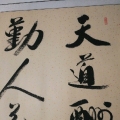 天道酬
勤人善